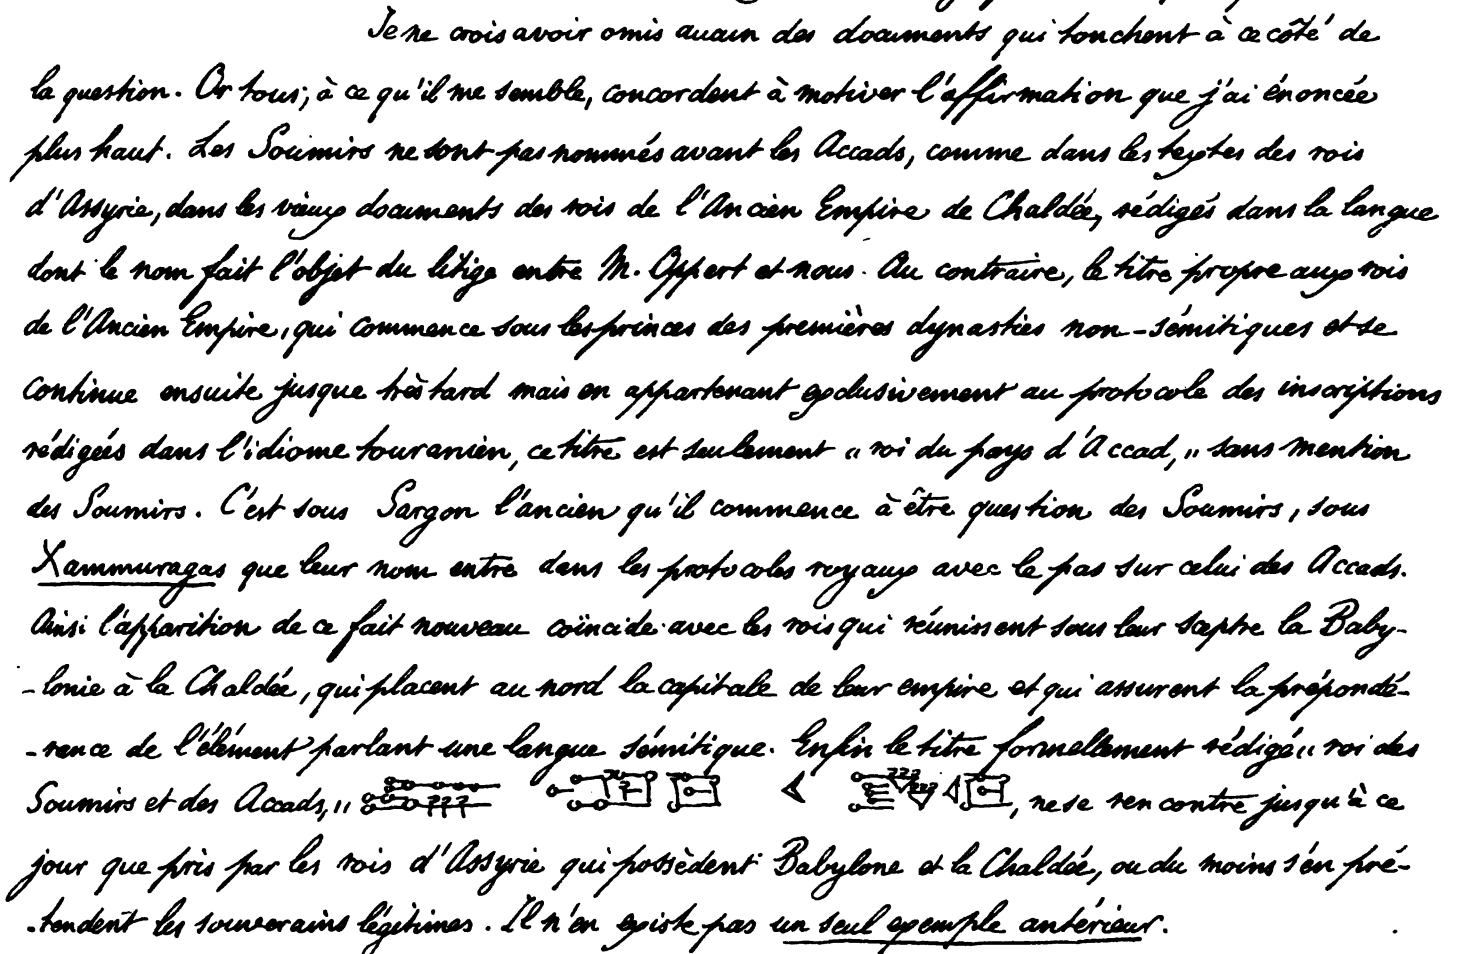 Je ne crois avoir omis aucun des documents qui touchent à ce côté de
la question. Or tous, à ce qu'il me semble, concordent à motiver l'affirmation que j'ai énoncée
plus haut. Les Soumirs ne sont pas nommés avant les Accads, comme dans les textes des rois
d'Assyrie, dans les vieux documents des rois de l'Ancien Empire de Chaldée, rédigés dans la langue
dont le nom fait l'objet du litige entre M. Oppert et nous. Au contraire, le titre propre aux rois
de l'Ancien Empire, qui commence sous les princes des premières dynasties non-sémitiques et se
continue ensuite jusque très tard mais en appartenant exclusivement au protocole des inscriptions
rédigées dans l'idiome touranien, ce titre est seulement „ roi du pays d'Accad, „ sans mention
des Soumirs. C'est sous Sargon l'ancien qu'il commence à être question des Soumirs, sous
Xammuragas que leur nom entre dans les protocoles royaux avec le pas sur celui des Accads.
Ainsi l'apparition de ce fait nouveau coïncide avec les rois qui réunissent sous leur sceptre la Baby-
-lonie à la Chaldée, qui placent au nord la capitale de leur empire et qui assurent la prépondé-
-rance de l'élément parlant une langue sémitique. Enfin le titre formellement rédigé „ roi des
Soumirs et des Accads, „ , ne se rencontre jusqu'à ce
jour que pris par les rois d'Assyrie qui possèdent Babylone et la Chaldée, ou du moins s'en pré-
-tendent les souverains légitimes. Il n'en existe pas un seul exemple antérieur.